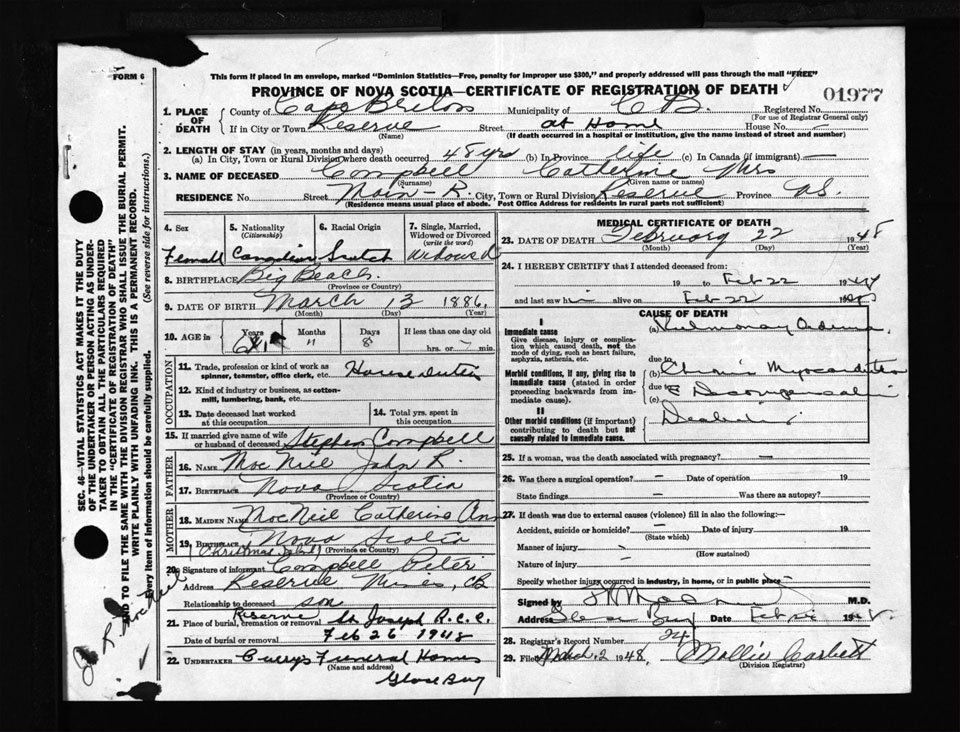 FORM 6
This form if placed in an envelope, marked "Dominion Statistics—Free, penalty for improper use $300," and properly addressed will pass through the mail "FREE"
PROVINCE OF NOVA SCOTIA—CERTIFICATE OF REGISTRATION OF DEATH
01977
1. PLACE OF DEATH
County of Cape Breton Municipality of C B. Registered No.
(For use of Registrar General only)
If in City or Town Reserve Street at Home House No. —
(Name) (If death occurred in a hospital or institution, give the name instead of street and number)
2. LENGTH OF STAY (in years, months and days)
(a) In City, Town or Rural Division where death occurred 48 yrs (b) In Province life (c) In Canada (if immigrant) —
3. NAME OF DECEASED Campbell Catherine Mrs
(Surname) (Given name or names)
RESIDENCE No. Street Main-R. City, Town or Rural Division Reserve Province NS.
(Residence means usual place of abode. Post Office Address for residents in rural parts not sufficient)
4. Sex
5. Nationality (Citizenship)
6. Racial Origin
7. Single, Married, Widowed or Divorced (write the word)
Female Canadian Scotch Widowed
8. BIRTHPLACE Big Beach.
(Province or Country)
9. DATE OF BIRTH March 13 1886.
(Month) (Day) (Year)
10. AGE is { Years Months Days If less than one day old
61 11 8 hrs. or min.
OCCUPATION
11. Trade, profession or kind of work as spinner, teamster, office clerk, etc. House duties
12. Kind of industry or business, as cotton-mill, lumbering, bank, etc.
13. Date deceased last worked at this occupation
14. Total yrs. spent in this occupation
15. If married give name of wife or husband of deceased Stephen Campbell
FATHER
16. NAME MacNeil John R.
17. BIRTHPLACE Nova Scotia
(Province or Country)
MOTHER
18. MAIDEN NAME MacNeil Catherine Ann
19. BIRTHPLACE Nova Scotia
(Christmas Island) (Province or Country)
20. Signature of informant Campbell Peter
Address Reserve Mines, CB
Relationship to deceased son
21. Place of burial, cremation or removal Reserve St Joseph R.C.C.
Date of burial or removal Feb 26 1948
22. UNDERTAKER Curry's Funeral Home
(Name and address)
Glace Bay
MEDICAL CERTIFICATE OF DEATH
23. DATE OF DEATH February 22 1948
(Month) (Day) (Year)
24. I HEREBY CERTIFY that I attended deceased from:
19 to Feb 22 19
and last saw h alive on Feb 22 19
CAUSE OF DEATH
I
Immediate cause
Give disease, injury or complication which caused death, not the mode of dying, such as heart failure, asphyxia, asthenia, etc.
(a) Pulmonary Odema
due to
Morbid conditions, if any, giving rise to immediate cause (stated in order proceeding backwards from immediate cause).
(b) Chronic Myocarditis
due to
(c) Decompensation
II
Other morbid conditions (if important) contributing to death but not causally related to immediate cause.
25. If a woman, was the death associated with pregnancy? —
26. Was there a surgical operation? — Date of operation 19
State findings — Was there an autopsy?
27. If death was due to external causes (violence) fill in also the following:—
Accident, suicide or homicide? — Date of injury 19
(State which)
Manner of injury
(How sustained)
Nature of injury
Specify whether injury occurred in industry, in home, or in public place
Signed by M.D.
Address Glace Bay Date 19
28. Registrar's Record Number 24
29. Filed March 2 1948. Mollie Corbett
(Division Registrar)
SEC. 46—VITAL STATISTICS ACT MAKES IT THE DUTY
OF THE UNDERTAKER OR PERSON ACTING AS UNDERTAKER TO OBTAIN ALL THE PARTICULARS REQUIRED
IN THE "CERTIFICATE OF REGISTRATION OF DEATH"
AND TO FILE THE SAME WITH THE DIVISION REGISTRAR WHO SHALL ISSUE THE BURIAL PERMIT.
WRITE PLAINLY WITH UNFADING INK. THIS IS A PERMANENT RECORD.
Every item of information should be carefully supplied. (See reverse side for instructions.)